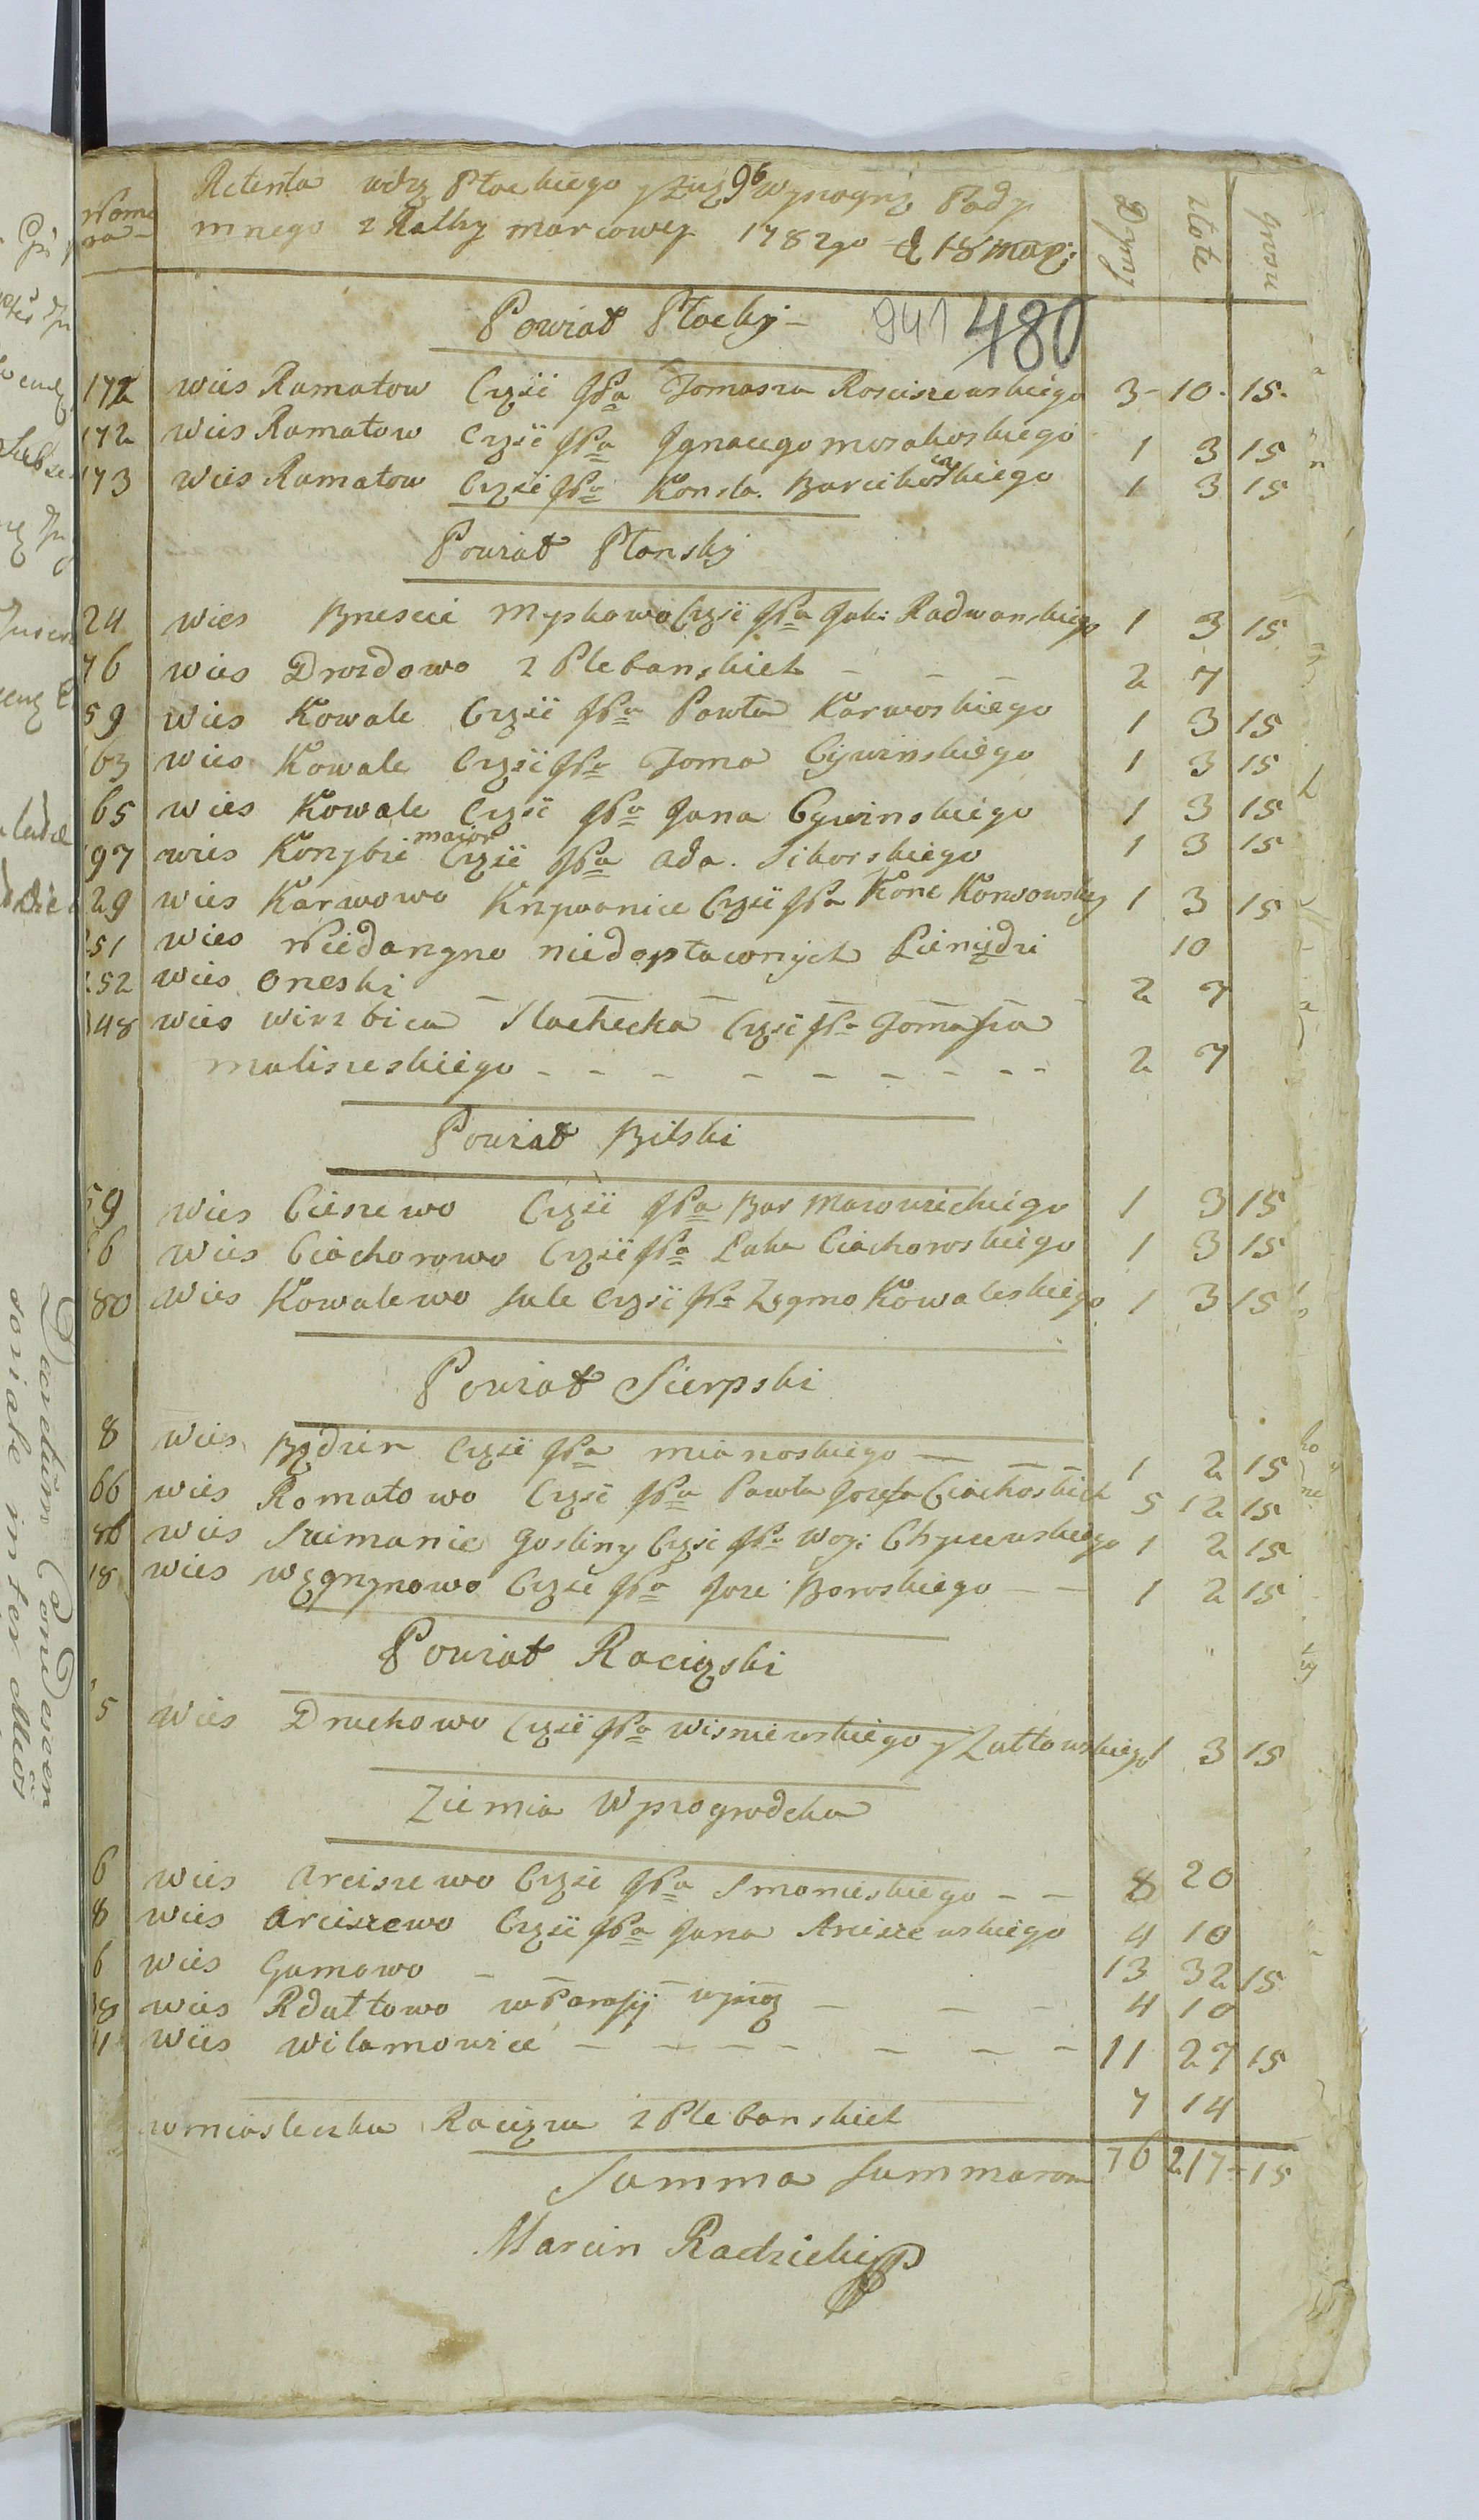 Nome
ra
Retenta wdz Płockiego y Zię 96 Wyszogrz Pady
mnego z Ratty marcowey 1782go d 18 marz:
Dymy złote grosze
Powiat Płocky 941 480
172 wies Ramatow Częsć JPa Tomasza Rosciszewskiego 3 - 10 . 15 .
172 wies Ramatow Częsć JPa Jgnacego morakoskiego 1 3 15
173 wies Ramatow Częsć JPa Konsta. Barcikoskiego 1 3 15
Powiat Płonsky
24 wies Brzescie Myskowo Częsć JPa Jak: Radwanskiego 1 3 15
76 wies Drozdowo z Plebanskich - - - 2 7
59 wies Kowale Częsć JPa Pawła Karwoskiego 1 3 15
63 wies Kowale Częsć JPa Toma Cywinskiego 1 3 15
65 wies Kowale Częsć JPa Jana Cywinskiego 1 3 15
97 wies Korzybie maior Częsć JPa Ada. Sikorskiego 1 3 15
29 wies Karwowo Krzywonice Częsć JPa Kone Korwowskieg 1 3 15
251 wies Niedarzyno niedopłaconych Pieniędzi 10
252 wies Orzeski - - - - - - 2 7
48 wies wirzbica Slachecka Częsć JPa Tomasza
maliszeskiego - - - - - - - - - 2 7
Powiat Bilski
59 wies Cieszewo Częsć JPa Bar Mazowieckiego 1 3 15
6 wies Ciachorowo Częsć JPa Luka Ciachoroskiego 1 3 15
80 wies Kowalewo Sule Częsć JPa Zygmo Kowaleskiego 1 3 15
Powiat Sierpski
8 wies Będzin Częsć JPa mianoskiego - - - 1 2 15
66 wies Romatowo Częsć JPa Pawła Jozefa Ciachoskich 5 12 15
86 wies Szimanie Gosliny Częsć JPa Woy: Chyczewskiego 1 2 15
18 wies Węgrzynowo Częsć JPa Joze: Boroskiego - - 1 2 15
Powiat Raciązski
5 wies Druchowo Częsć JPa Wisniewskiego y Zułtowskiego 1 3 15
Ziemia Wyszogrodcka
6 wies Arciszewo Częsć JPa Smonieskiego - - 8 20
8 wies Arciszewo Częsć JPa Jana Arciszewskiego 4 10
6 wies Gumowo - - - 13 32 15
8 wies Rdułtowo w Parafij wyszog - - - 4 10
11 wies Wilamowice - - - - - - - 11 27 15
w miasteczku Raciązu z Plebanskich 7 14
Summa Summarom 76 217 - 15
Marcin Radzicki